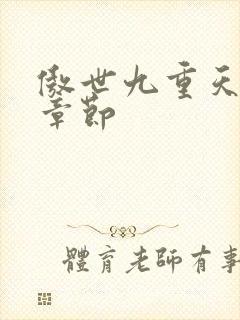 傲世九重天
章節
體育老師有事